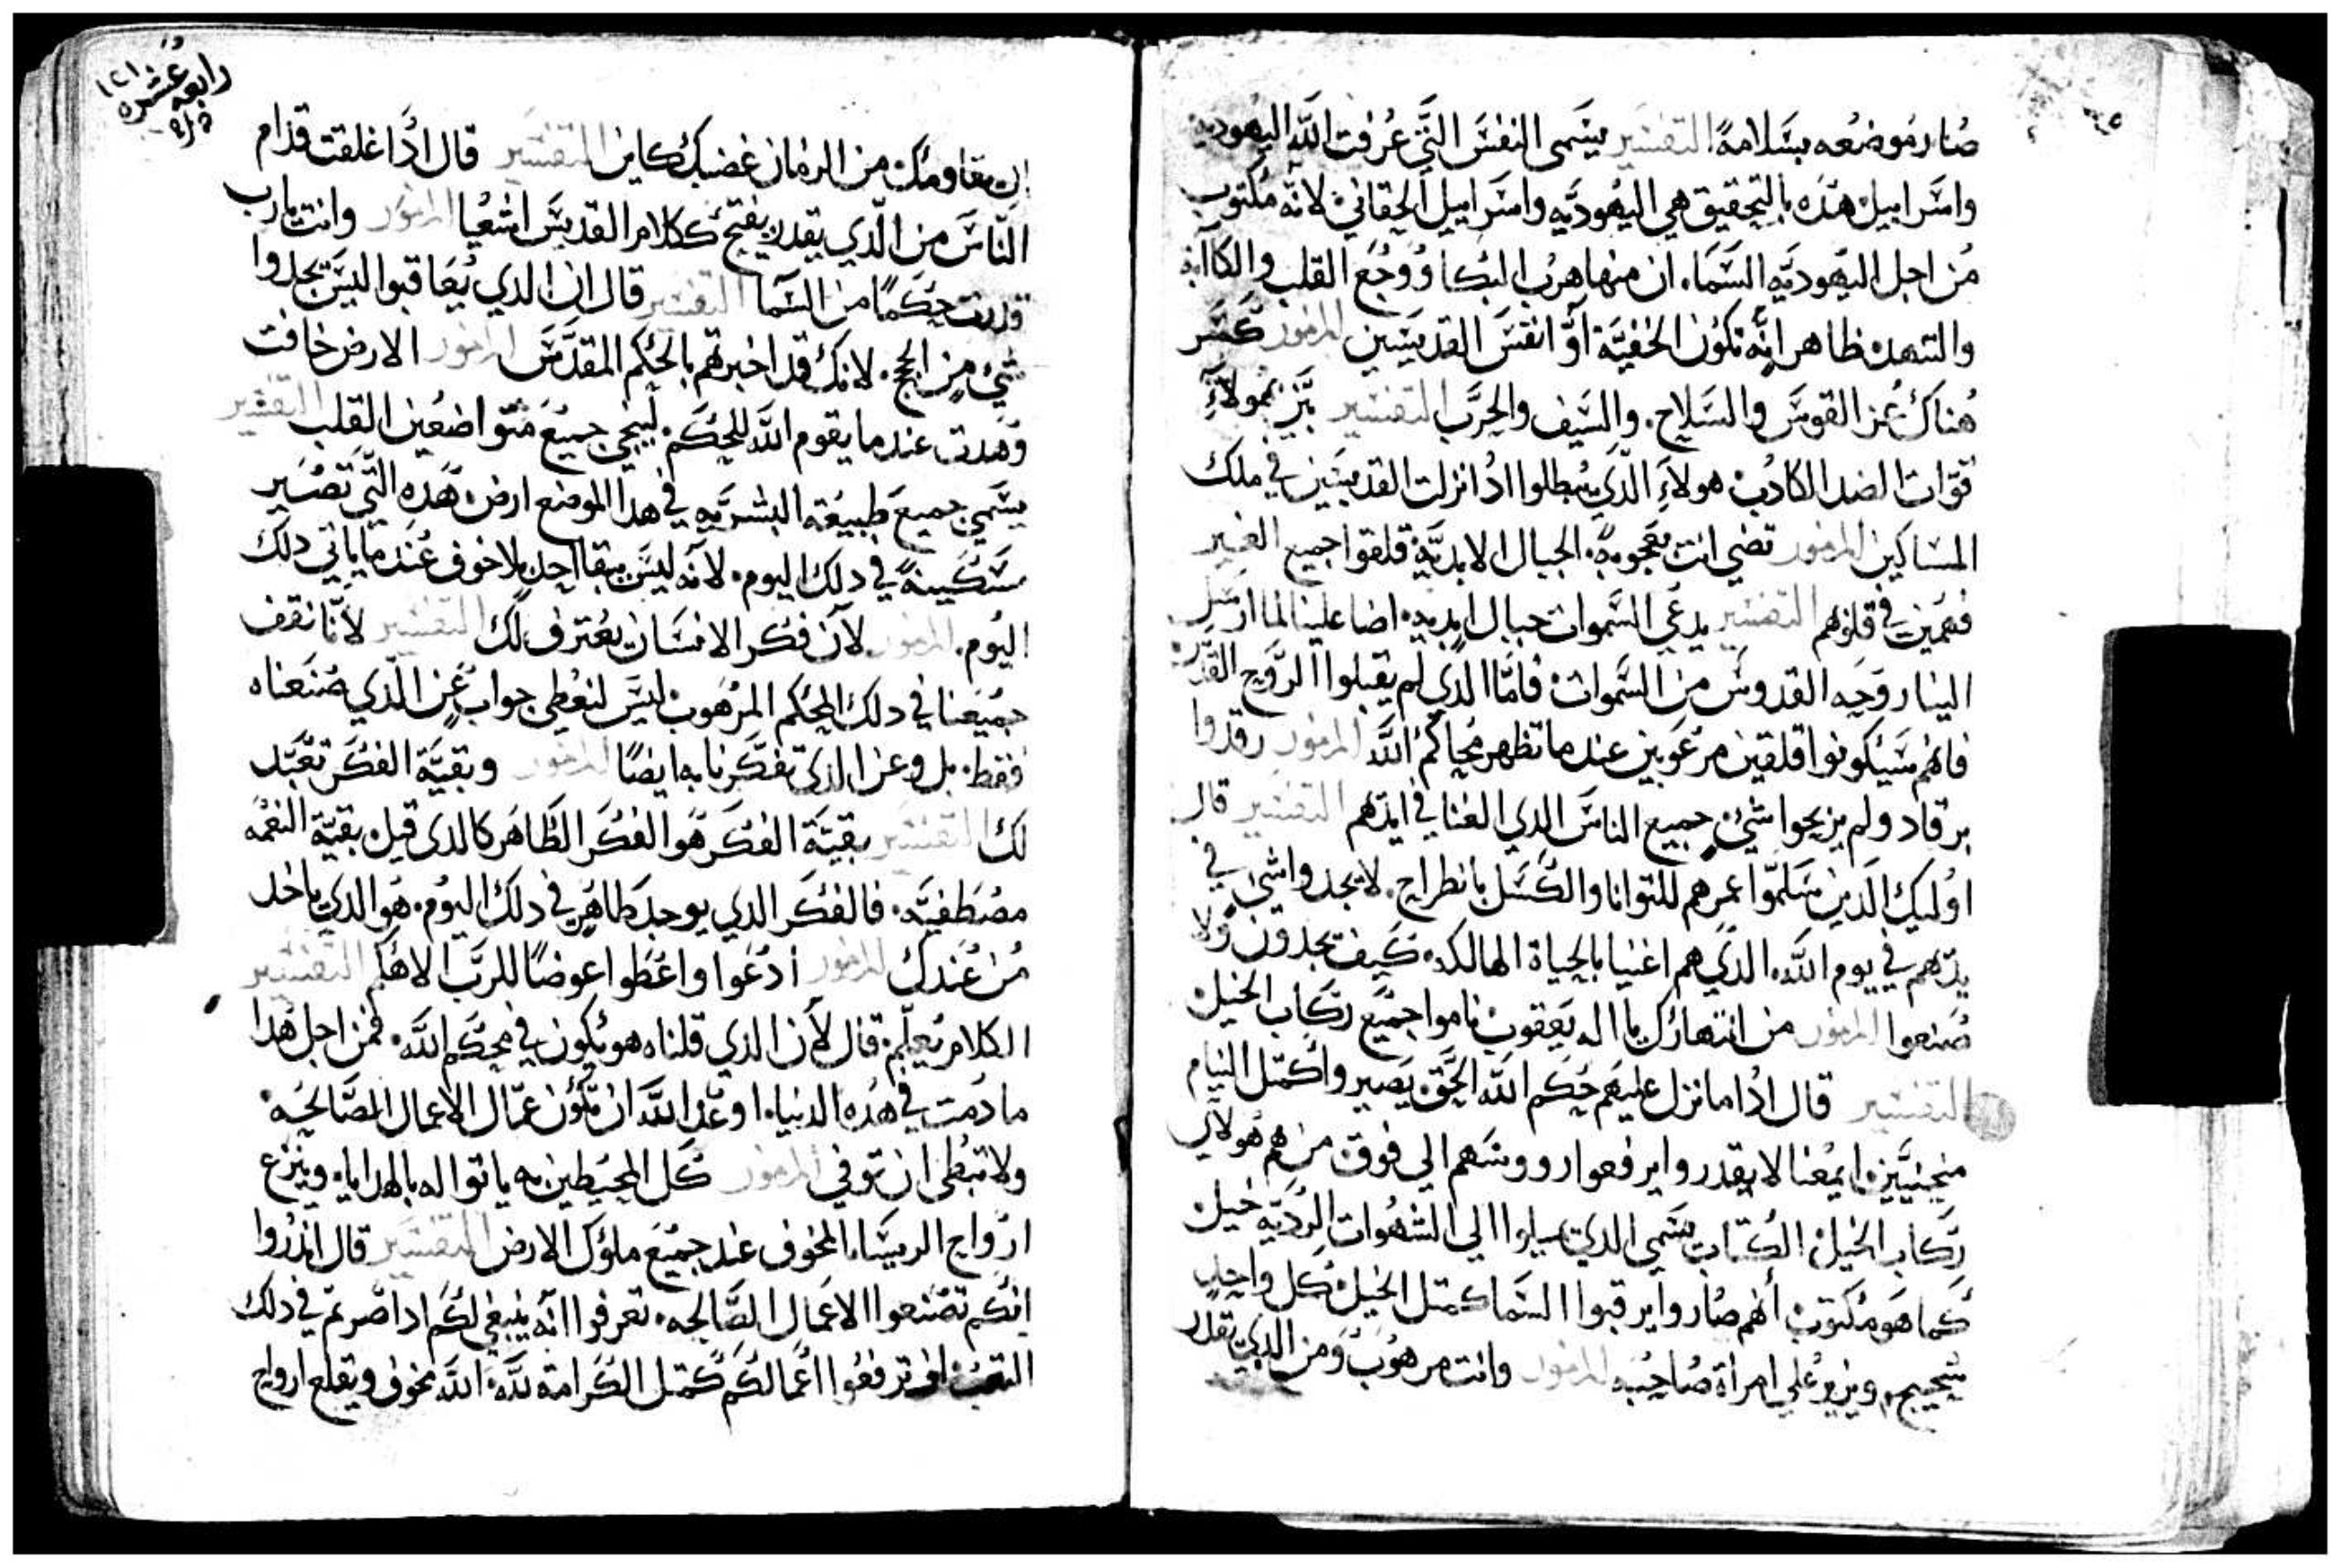 صار موضعه بسلامة التفسير يسمى النفس التي عرفت الله اليهودية
واسراييل هذه بالتحقيق هي اليهوديه واسراييل الحقاني لانه مكتوب
من اجل اليهوديه السماء ان منها هرب البكا ووجع القلب والكاابه
والتنهد ظاهر انه تكون الخفية او انفس القديسين المزمور كسر
هناك عز القوس والسلاح والسيف والحرب التفسير بهولاء
قوات الضد الكادب هولاء الدي يبطلوا ادا نزلت القديسين في ملك
المساكين المزمور تضي انت بعجوبه الجبال الابدية قلقوا جميع الغير
فهمين في قلوبهم التفسير يدعي السموات جبال ابديه اضا علينا لما ارسل
الينا روحه القدوس من السموات فاما الدي لم يقبلوا الروح القدس
فانهم سيكونوا قلقين مرعوبين عندما تظهر محاكم الله المزمور رقدوا
برقاد ولم يربحوا شي جميع الناس الدي الغنا في ايدهم التفسير قال
اوليك الدين سلموا عمرهم للتوانا والكسل بانطراح لا يجدوا شي في
يدهم في يوم الله الدي هم اغنيا بالحياة الهالكه كيف تجدون ولا
صنعوا المزمور من انتهارك يا اله يعقوب ناموا جميع ركاب الخيل
التفسير قال ادا ما نزل عليهم حكم الله الحق يصير واكمتل النيام
منحنيين ايمعنا لا يقدروا يرفعوا رووسهم الي فوق من هم هولاى
ركاب الخيل الكتاب يسمي الدي مالوا الي الشهوات الرديه خيل
كما هو مكتوب انهم صاروا يرقبوا النسا كمتل الخيل كل واحد
يزعق علي امراة صاحبه المزمور وانت مرهوب ومن الدي يقدر
ان يقاومك من الزمان غضبك كاين التفسير قال ادا غلقت قدام
الناس من الدي يقدر يفتح ككلام القديس اشعيا المزمور وانت يارب
قررت حكما من السما التفسير قال ان الدي يعاقبوا ليس يجدوا
شي من الحجج لانك قد اخبرتهم بالحكم المقدس المزمور الارض خافت
وهدت عندما يقوم الله للحكم لينجي جميع متواضعين القلب التفسير
يسمي جميع طبيعة البشريه في هدا الموضع ارض هده التي تصير
سكينة في دلك اليوم لانه ليس يبقا احد بلا خوف عندما ياتي دلك
اليوم المزمور لان فكر الانسان يعترف لك التفسير لاننا نقف
جميعنا في دلك الحكم المرهوب ليس لنعطي جواب عن الدي صنعناه
فقط بل وعن الدي تفكرنا به ايضا المزمور وبقية الفكر تعيد
لك التفسير بقية الفكر هو الفكر الظاهر كالدي قيل بقية النعمه
مصطفيه فالفكر الدي يوجد طاهر في دلك اليوم هو الدي ياخد
من عندك المزمور ادعوا واعطوا عوضا للرب الاهكم التفسير
الكلام يعلم قال لان الدي قلناه هو يكون في محكم الله فمن اجل هدا
ما دمت في هده الدنيا اوعد الله ان تكون عمال الاعمال الصالحه
ولا تبطى ان توفي المزمور كل المحيطين به ياتوا له بالهدايا وينزع
ارواح الريسا المخوف عند جميع ملوك الارض التفسير قال اندروا
انكم تصنعوا الاعمال الصالحه تعرفوا انه ينبغي لكم ادا صرتم في دلك
التعب ان ترفعوا اعمالكم كمتل الكرامة لله الله مخوف ويقلع ارواح